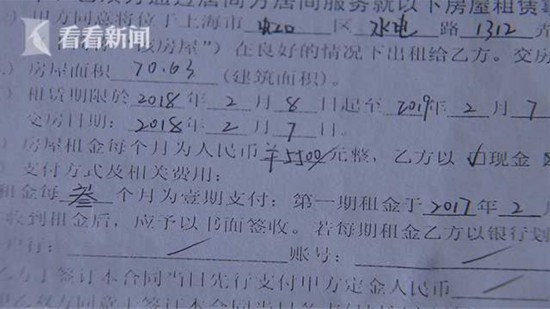 方通过居间方居间服务就以下房屋租赁事
甲方同意将位于上海市 虹口 区 水电 路 1312 弄
看看新闻
房屋”）在良好的情况下出租给乙方。交房
）房屋面积 70.63 （建筑面积）。
）租赁期限於 2018 年 2 月 8 日起至 2019 年 2 月 7
交房日期： 2018 年 2 月 7 日。
）房屋租金每个月为人民币 ¥5500 元整，乙方以 ☑现金
）支付方式及相关费用：
租金每 叁 个月为壹期支付；第一期租金于 2017 年 2 月
收到租金后，应予以书面签收。若每期租金乙方以银行划
户行： 账号：
乙方于签订本合同当日先行支付甲方定金人民币